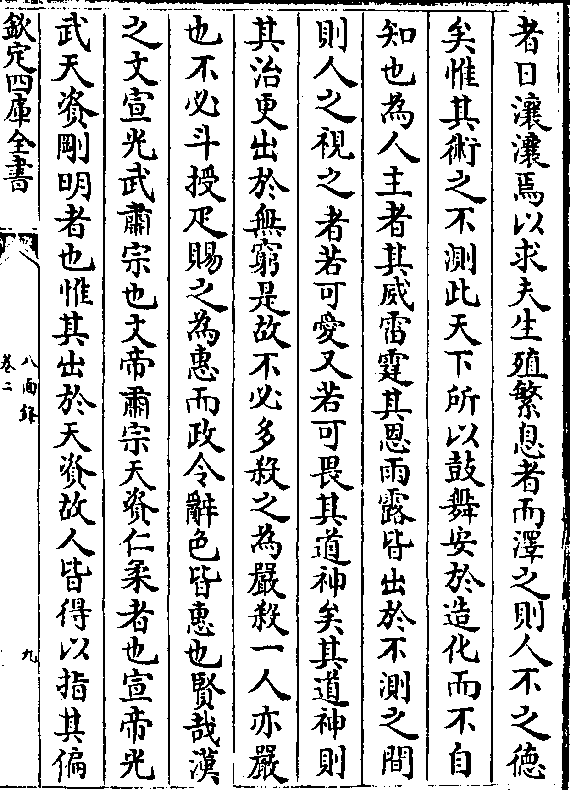 者曰瀼瀼焉以求夫生殖繁息者而澤之則人不之德
矣惟其術之不測此天下所以鼓舞安於造化而不自
知也為人主者其威雷霆其恩雨露皆出於不測之間
則人之視之者若可愛又若可畏其道神矣其道神則
其治更出於無窮是故不必多殺之為嚴殺一人亦嚴
也不必斗授尺賜之為惠而政令辭色皆惠也賢哉漢
之文宣光武肅宗也文帝肅宗天資仁柔者也宣帝光
武天資剛明者也惟其出於天資故人皆得以指其偏
欽定四庫全書
八面鋒
卷二
九